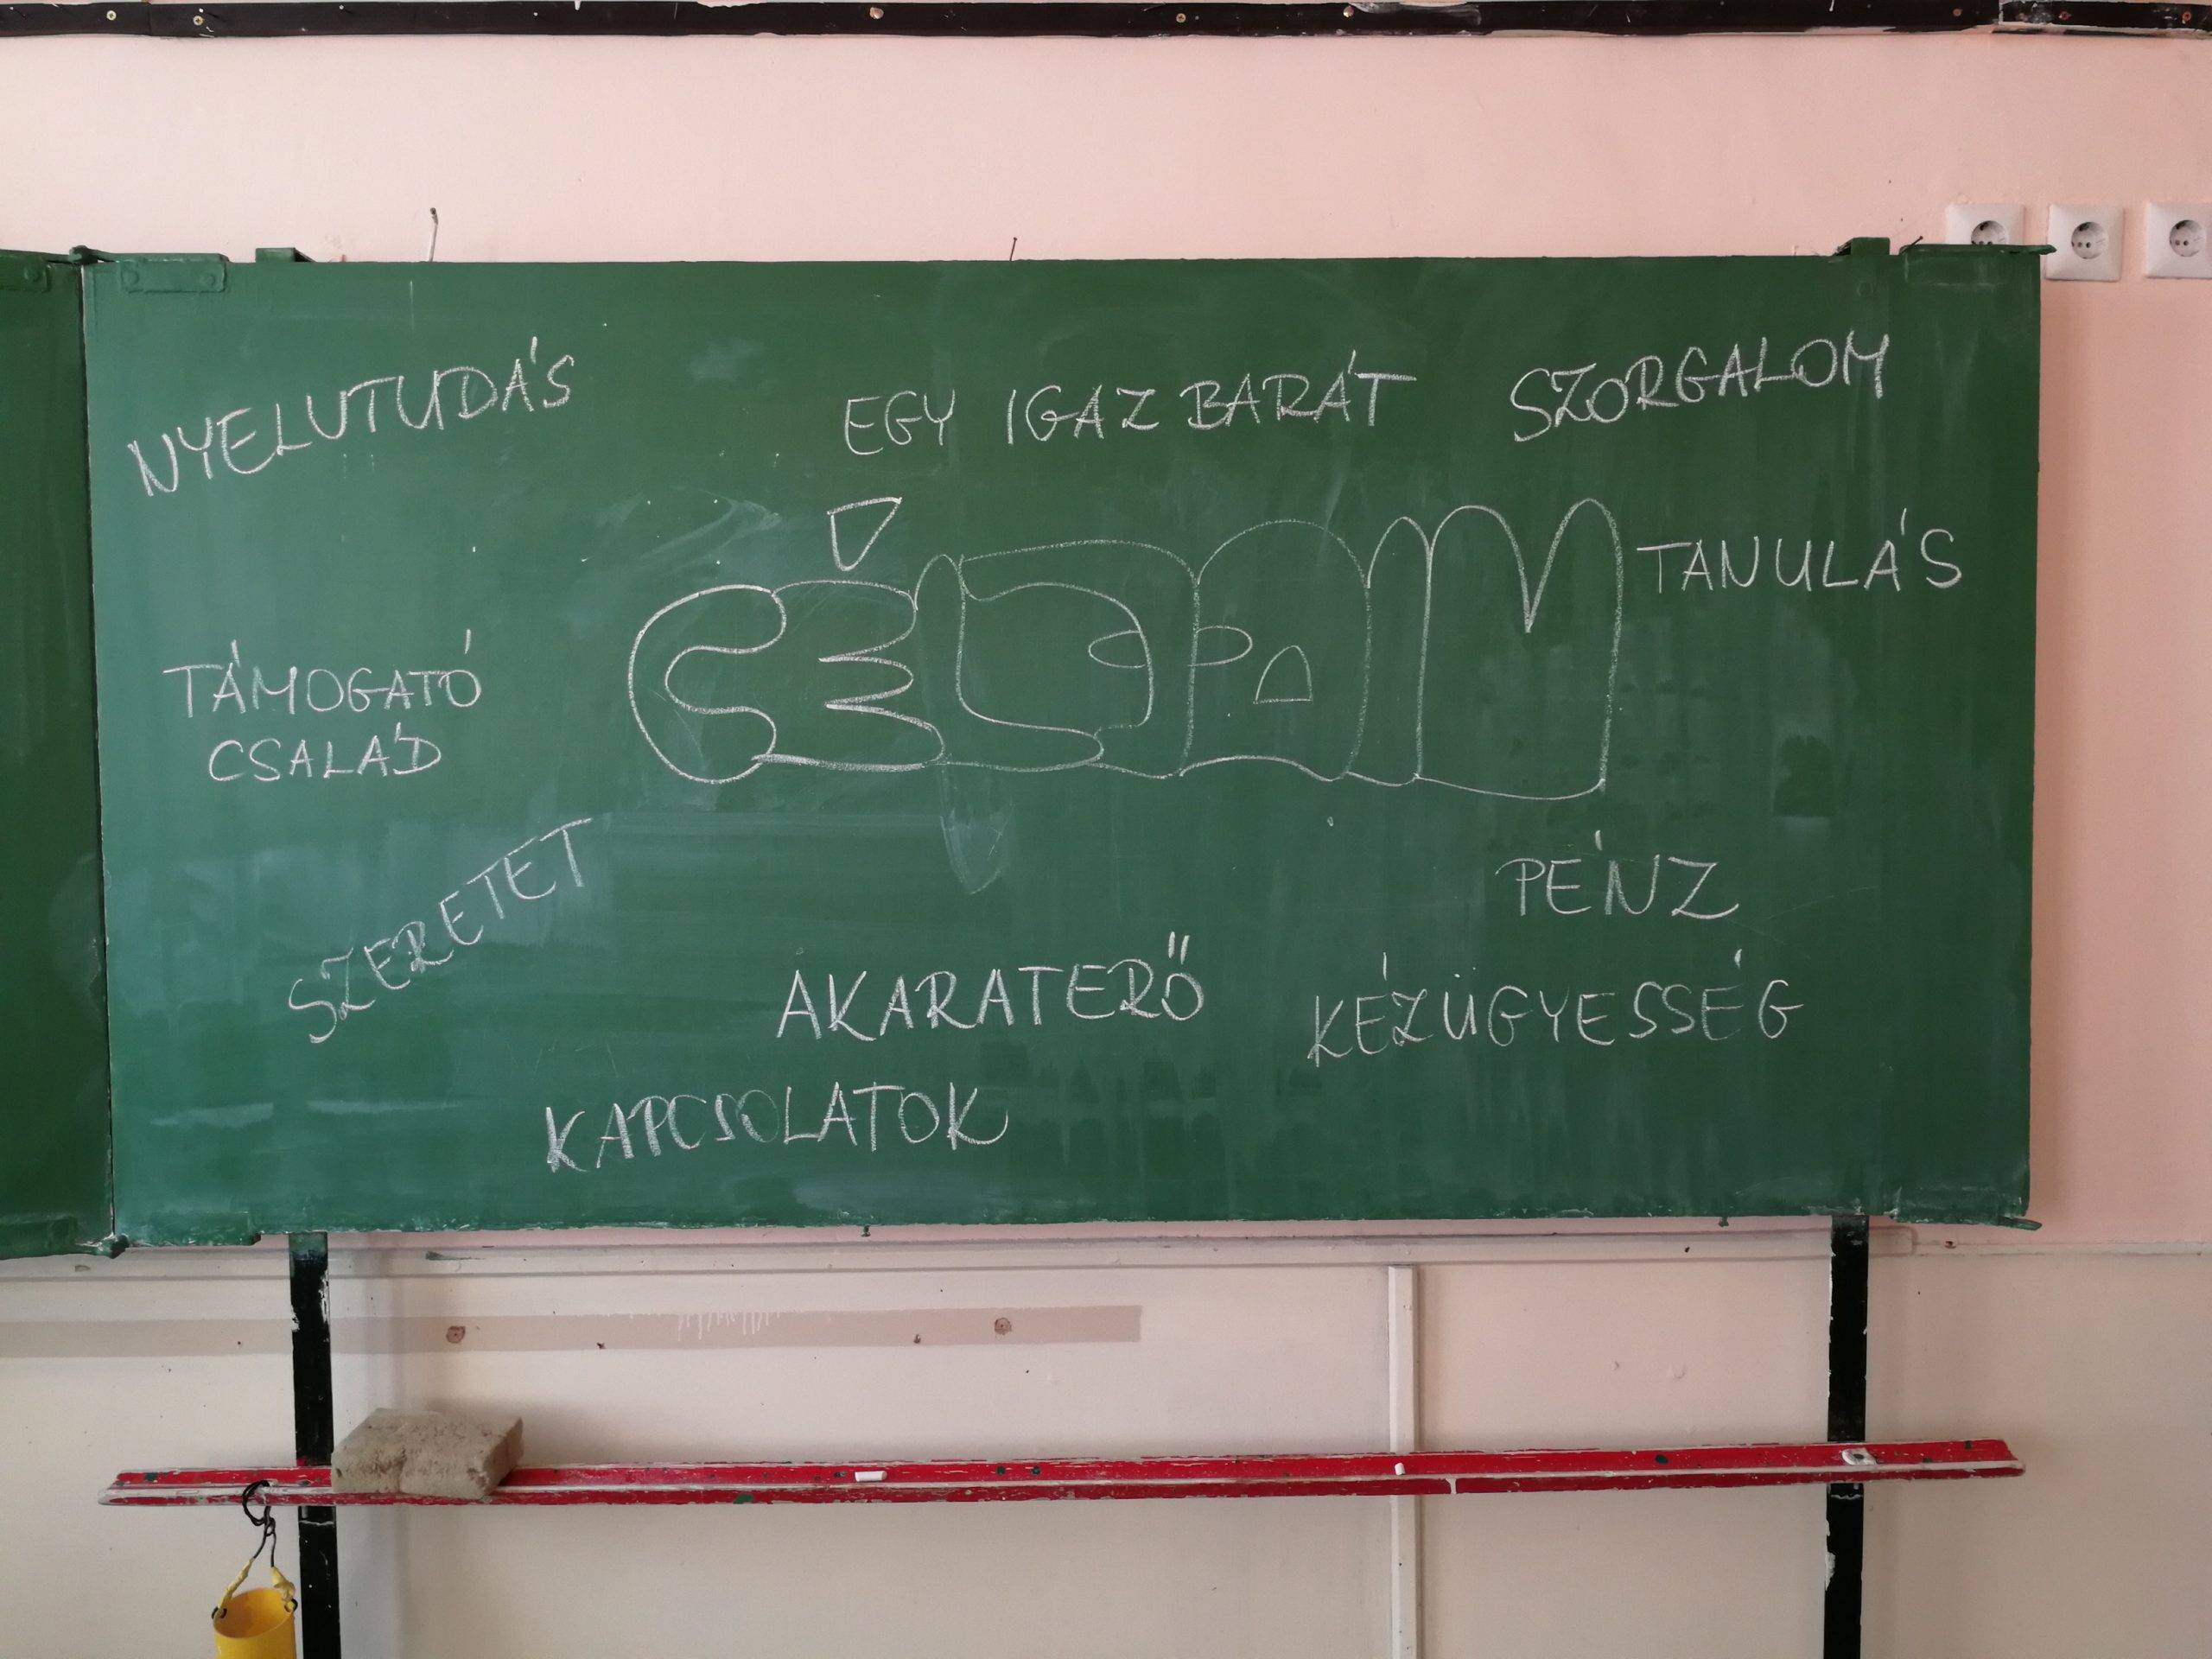 NYELVTUDÁS
EGY IGAZ BARÁT
SZORGALOM
TANULÁS
CÉLJAIM
TÁMOGATÓ
CSALÁD
SZERETET
PÉNZ
AKARATERŐ
KÉZÜGYESSÉG
KAPCSOLATOK